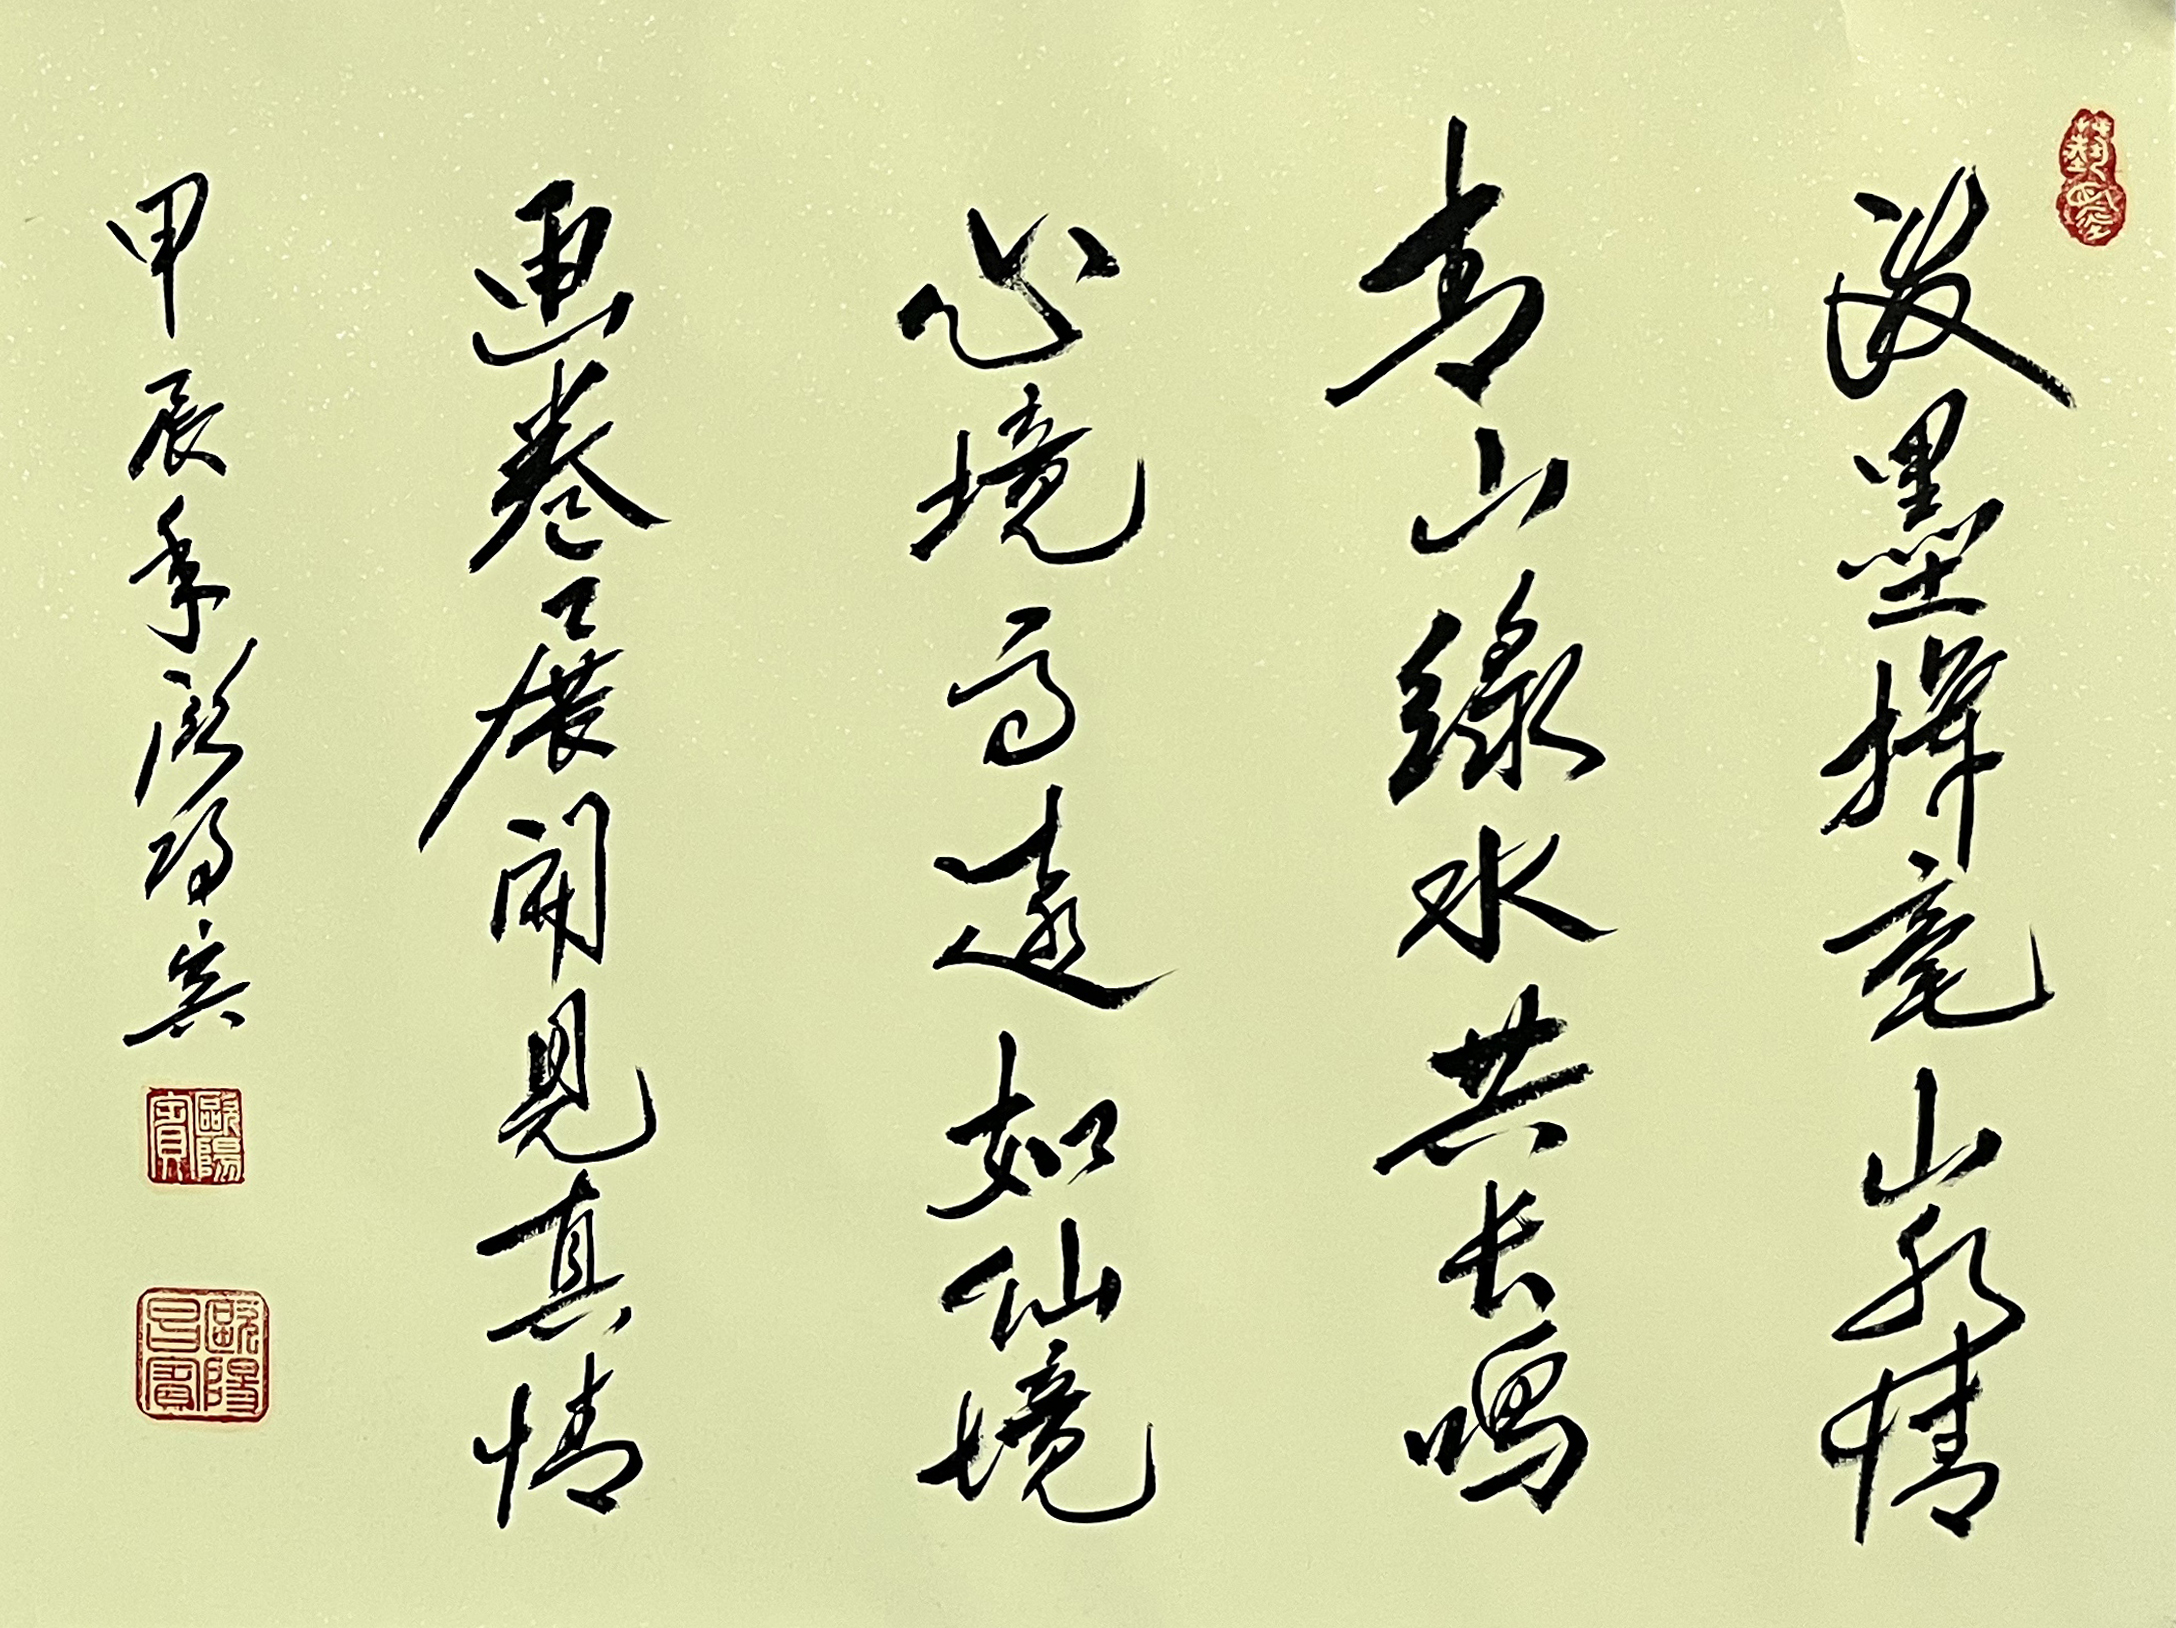 泼墨挥毫山水情
青山绿水共长鸣
心境高远如仙境
画卷展开见真情
甲辰年欧阳宾
歐陽賓
歐陽昌賓